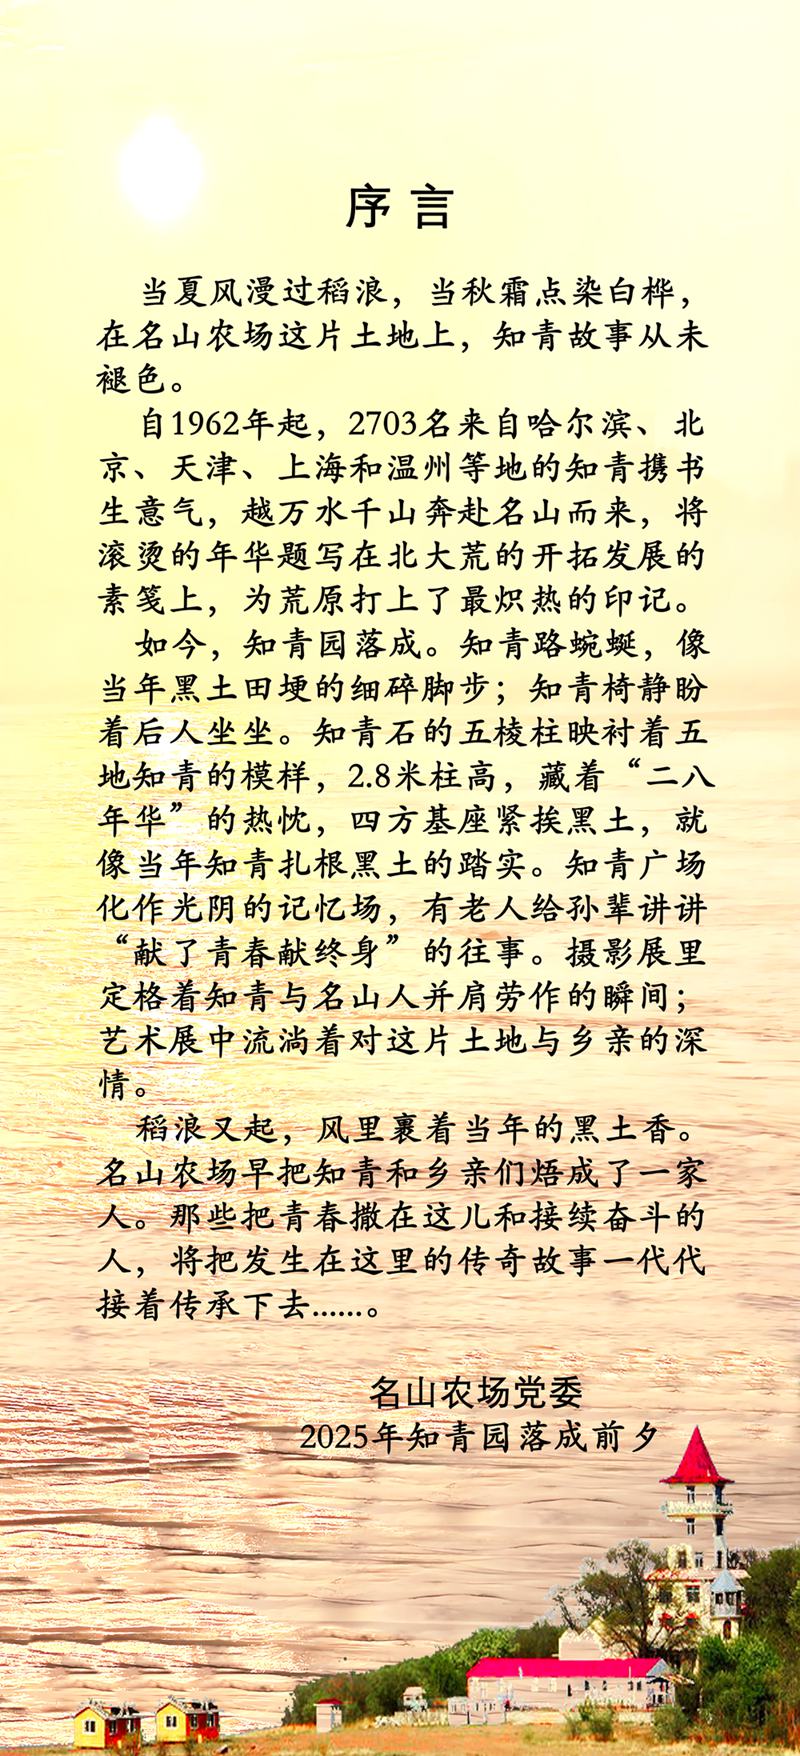 序言
当夏风漫过稻浪，当秋霜点染白桦，
在名山农场这片土地上，知青故事从未
褪色。
自1962年起，2703名来自哈尔滨、北
京、天津、上海和温州等地的知青携书
生意气，越万水千山奔赴名山而来，将
滚烫的年华题写在北大荒的开拓发展的
素笺上，为荒原打上了最炽热的印记。
如今，知青园落成。知青路蜿蜒，像
当年黑土田埂的细碎脚步；知青椅静盼
着后人坐坐。知青石的五棱柱映衬着五
地知青的模样，2.8米柱高，藏着“二八
年华”的热忱，四方基座紧挨黑土，就
像当年知青扎根黑土的踏实。知青广场
化作光阴的记忆场，有老人给孙辈讲讲
“献了青春献终身”的往事。摄影展里
定格着知青与名山人并肩劳作的瞬间；
艺术展中流淌着对这片土地与乡亲的深
情。
稻浪又起，风里裹着当年的黑土香。
名山农场早把知青和乡亲们焐成了一家
人。那些把青春撒在这儿和接续奋斗的
人，将把发生在这里的传奇故事一代代
接着传承下去……。
名山农场党委
2025年知青园落成前夕